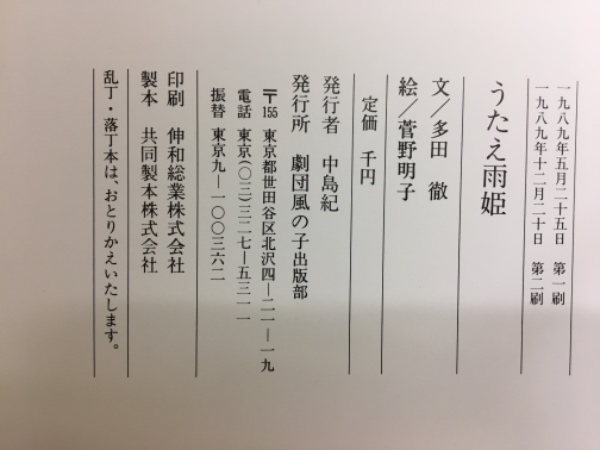 一九八九年五月二十五日　第一刷
一九八九年十二月二十日　第二刷
うたえ雨姫
文／多田　徹
絵／菅野明子
定価　千円
発行者　中島紀
発行所　劇団風の子出版部
〒155　東京都世田谷区北沢四―二一―一九
電話　東京(〇三)三二七―五三一一
振替　東京九―一〇〇三六二
印刷　伸和総業株式会社
製本　共同製本株式会社
乱丁・落丁本は、おとりかえいたします。